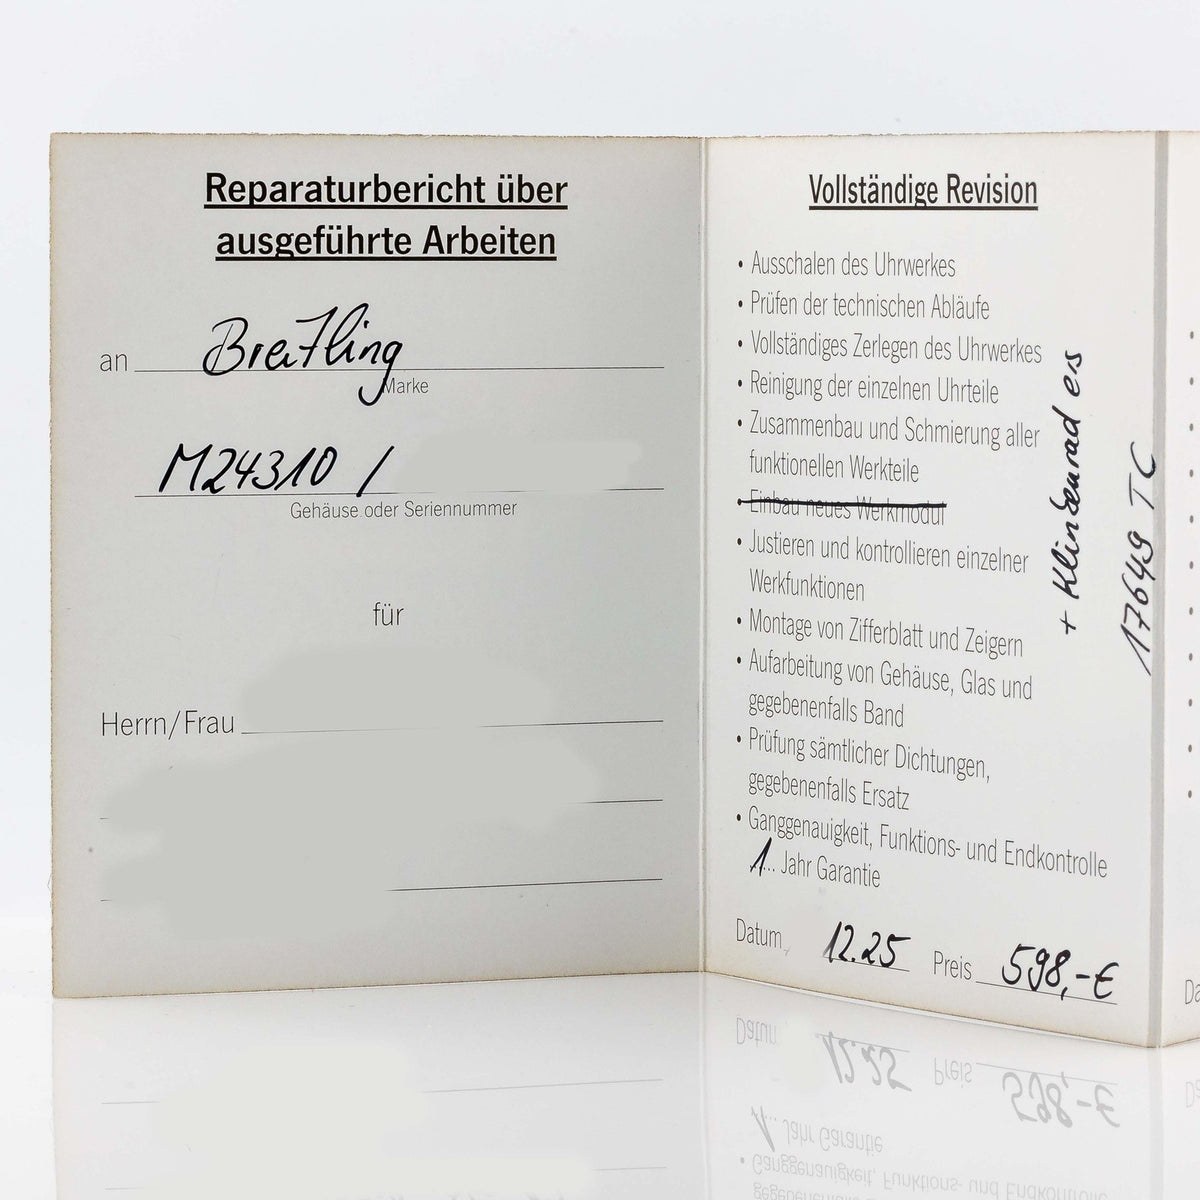 Reparaturbericht über
ausgeführte Arbeiten
an Breitling
Marke
M24310 /
Gehäuse oder Seriennummer
für
Herrn/Frau
Vollständige Revision
• Ausschalen des Uhrwerkes
• Prüfen der technischen Abläufe
• Vollständiges Zerlegen des Uhrwerkes
• Reinigung der einzelnen Uhrteile
• Zusammenbau und Schmierung aller
funktionellen Werkteile
• Einbau neues Werkmodul
• Justieren und kontrollieren einzelner
Werkfunktionen
• Montage von Zifferblatt und Zeigern
• Aufarbeitung von Gehäuse, Glas und
gegebenenfalls Band
• Prüfung sämtlicher Dichtungen,
gegebenenfalls Ersatz
• Ganggenauigkeit, Funktions- und Endkontrolle
1... Jahr Garantie
Datum 12.25 Preis 598,-€
+ Klinkenrad
17649 TC
Da